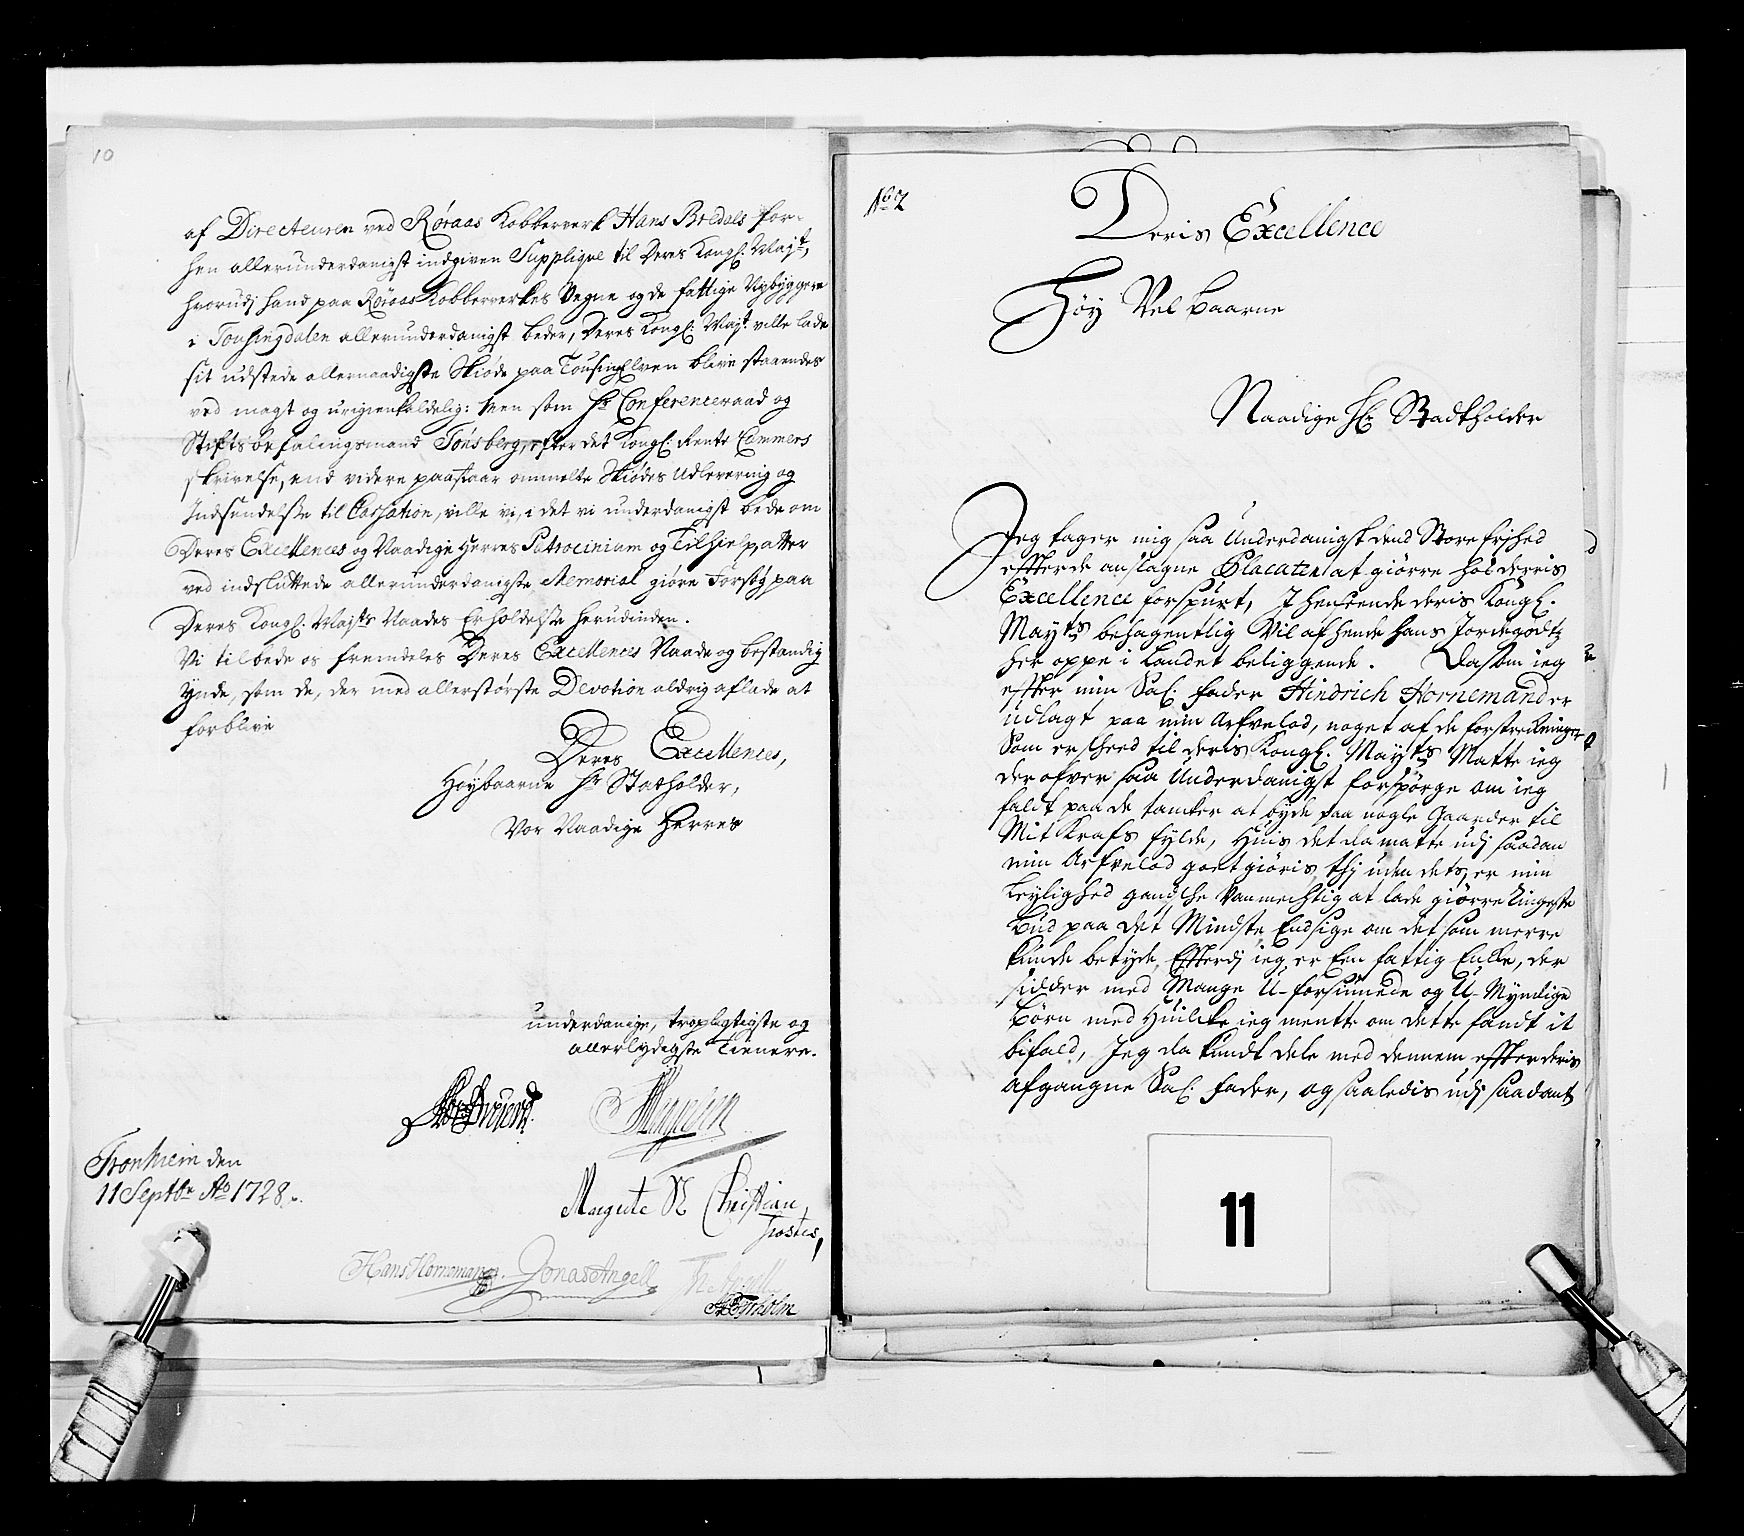 10
af Directeuren ved Røraas Kobberverk Hans Bredals for-
hen allerunderdanigst indgiven Supplique til Deres Kongl: Mayt,
hvorudj hand paa Røraas Kobberverkes Vegne og de fattige Nybyggere
i Tousingdalen allerunderdanigst beder, Deres Kongl: Mayt. ville lade
sit udstede allernaadigste Skiøde paa Tousing Elven blive staaendes
ved magt og uigienkaldelig: Men som Hr Conferenceraad og
Stiftsbefalingsmand Tønsberg, efter det Kongl: Rente Cammers
skrivelse, end videre paastaar ommelte Skiødes Udlevering og
Indsendelse til Cassation, ville vi, i det vi underdanigst bede om
Deres Excellences og Naadige Herres Patrocinium og Tilhielp, atter
ved indsluttede allerunderdanigste Memorial giøre Forsøg paa
Deres Kongl: Mayts Naades Erholdelse herudinden.
Vi tilbede os fremdeles Deres Excellences Naade og bestandig
Ynde, som de, der med allerstørste Devotion aldrig aflade at
forblive
Deres Excellences,
Høybaarne Hr Statholder,
Vor Naadige Herres
underdanige, tropligtigste og
allerlydigste Tienere.
Tronhiem den
11 Septbr Ao 1728.
Margrete Sl Christian
Hans Hornemann. Jonas Angell Th: Angell
No 2
Deris Excellence
Høy Vel baarne
Naadige Hr Stadtholder
Jeg tager mig saa Underdanigst dend Store frihed
effter de anslagne Placater at giørre hos derris
Excellence forspurt, I henseende deris Kongl.
Mayts behagentlig Vil afhende hans Jordegodtz
her oppe i Landet beliggende. Da som ieg
effter min Sal: fader Hindrich Hornemand er
udlagt paa min Arfvelod, noget af de forstreckninger
Som er skeed til deris Kongl. Mayts Matte ieg
der ofver saa Underdanigst forspørge om ieg
faldt paa de tancker at byde paa nogle Gaarder til
Mit Krafs fylde, Huis det da matte udj saadan
min Arfvelod got giøris, thj uden dets, er min
Leylighed gandske Vanmechtig at lade giørre Ringeste
Bud paa det Mindste, Endsige om det som meere
kunde betyde, Effterdj ieg er Een fattig Encke, der
sidder med Mange U-forsiunede og U-Myndige
Børn med Huilcke ieg mente om dette fandt it
bifald, Jeg da kundt dele med dennem effter deris
afgangne Sal: fader, og saaledis udj saadant
11